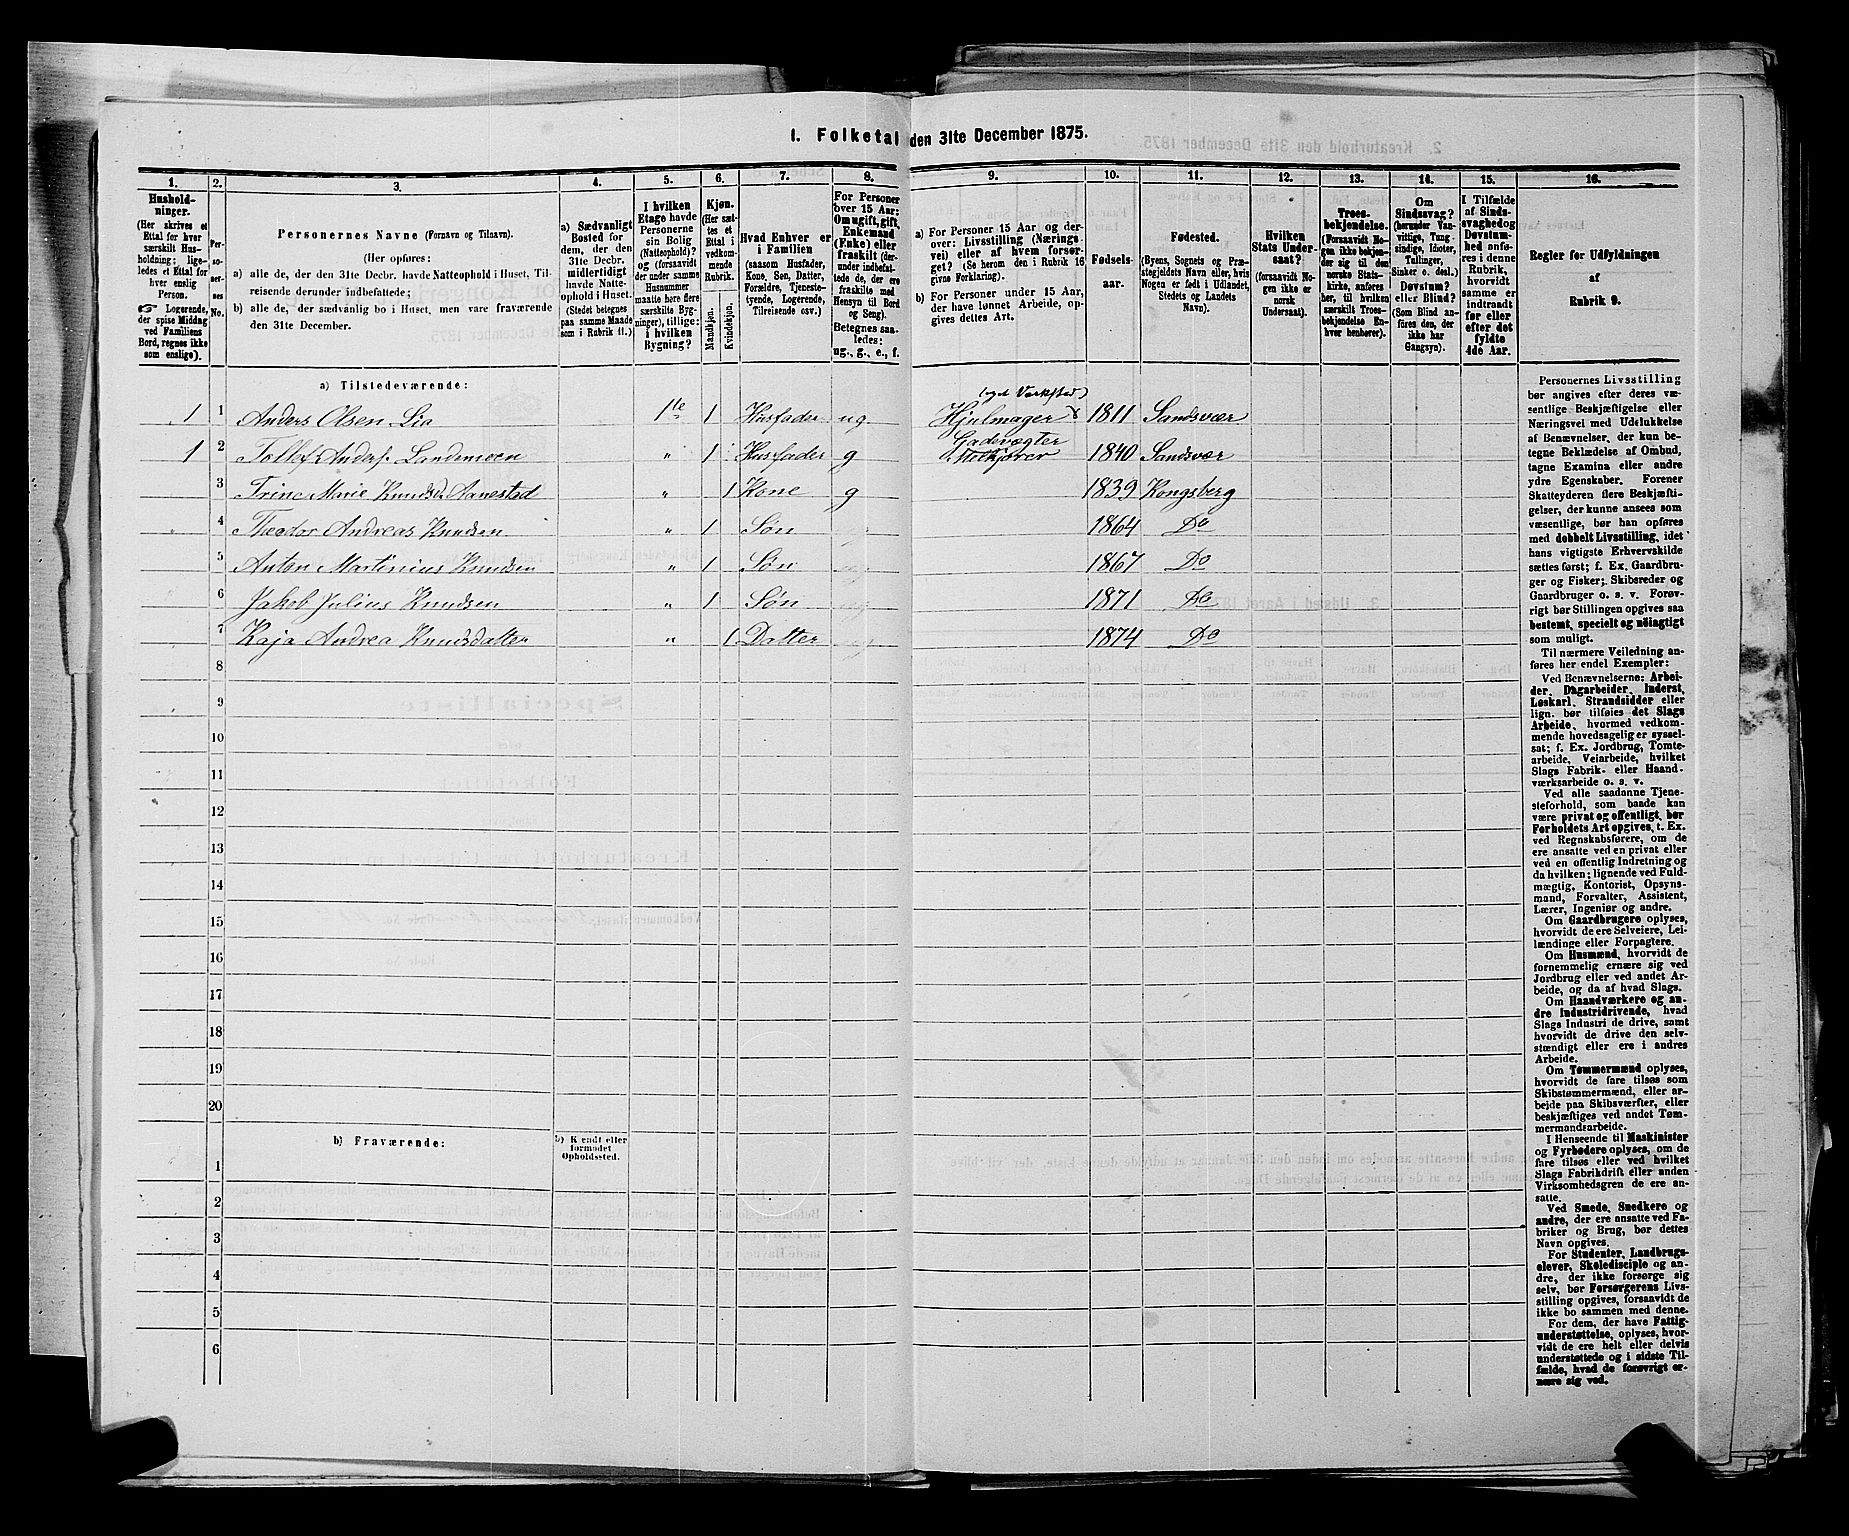 1. Folketal den 31te December 1875.
1.
Hushold-
ninger.
(Her skrives et
Ettal for hver
særskilt Hus-
holdning; lige-
ledes et Ettal for
hver enslig
Person.
Logerende,
der spise Middag
ved Familiens
Bord, regnes ikke
som enslige).
2.
Per-
so-
ner-
nes
No.
3.
Personernes Navne (Fornavn og Tilnavn).
(Her opføres:
a) alle de, der den 31te Decbr. havde Natteophold i Huset, Til-
reisende derunder indbefattede;
b) alle de, der sædvanlig bo i Huset, men vare fraværende
den 31te December.
4.
a) Sædvanligt
Bosted for
dem, der den
31te Decbr.
midlertidigt
havde Natte-
ophold i Huset.
(Stedet betegnes
paa samme Maade
som i Rubrik 11.)
5.
I hvilken
Etage havde
Personerne
sin Bolig
(Natteophold)?
og (forsaavidt
der under samme
Husnummer
maatte høre flere
særskilte Byg-
ninger), tillige:
i hvilken
Bygning?
6.
Kjøn.
(Her sæt-
tes et
Ettal i
vedkom-
mende
Rubrik.
Mandkjøn.
Kvindekjøn.
7.
Hvad Enhver er
i Familien
(saasom Husfader,
Kone, Søn, Datter,
Forældre, Tjeneste-
tyende, Logerende,
Tilreisende osv.)
8.
For Personer
over 15 Aar:
Om ugift, gift,
Enkemand
(Enke) eller
fraskilt (der-
under indbefat-
tede de, der ere
fraskilte med
Hensyn til Bord
og Seng).
Betegnes saa-
ledes:
ug., g., e., f.
9.
a) For Personer 15 Aar og der-
over: Livsstilling (Nærings-
vei) eller af hvem forsør-
get? (Se herom den i Rubrik 16
givne Forklaring).
b) For Personer under 15 Aar,
der have lønnet Arbeide, op-
gives dettes Art.
10.
Fødsels-
aar.
11.
Fødested.
(Byens, Sognets og Præ-
stegjeldets Navn eller, hvis
Nogen er født i Udlandet,
Stedets og Landets
Navn).
12.
Hvilken
Stats Under-
saat?
(forsaavidt No-
gen ikke er
norsk
Undersaat).
13.
Troes-
bekjendelse.
(Forsaavidt No-
gen ikke bekjen-
der sig til den
norske Stats-
kirke, anføres
her, til hvilken
særskilt Troes-
bekjendelse En-
hver henhører).
14.
Om
Sindssvag?
(herunder Van-
vittige, Tung-
sindige, Idioter,
Tullinger,
Sinker o. desl.)
Døvstum?
eller Blind?
(Som Blind an-
føres den, der
ikke har
Gangsyn).
15.
I Tilfælde
af Sinds-
svaghed og
Døvstum-
hed anfø-
res i denne
Rubrik,
hvorvidt
samme er
indtraadt
før eller
efter det
fyldte
4de Aar.
16.
Regler for Udfyldningen
af
Rubrik 9.
a) Tilstedeværende:
(eget Verksted)
1 1 Anders Olsen Lia 1te 1 Husfader ug. Hjulmager 1811 Sandsvær
Gadevægter
1 2 Tollef Anders. Landemoen " 1 Husfader g 1840 Sandsvær
3 Trine Marie Knudsd. Aanestad " 1 Kone g 1839 Kongsberg
4 Theodor Andreas Knudsen 1 Søn 1864 Do
5 Anton Martinius Knudsen " 1 Søn 1867 Do
6 Jakob Julius Knudsen " 1 Søn 1871 Do
7 Kaja Andrea Knudsdatter " 1 Datter 1874 Do
8
9
10
11
12
13
14
15
16
17
18
19
20
b) Fraværende:
b) Kjendt eller
formodet
Opholdssted.
1
2
3
4
5
6
Personernes Livsstilling
bør angives efter deres væ-
sentlige Beskjæftigelse eller
Næringsvei med Udelukkelse
af Benævnelser, der kun be-
tegne Beklædelse af Ombud,
tagne Examina eller andre
ydre Egenskaber. Forener
Skatteyderen flere Beskjæfti-
gelser, der kunne ansees som
væsentlige, bør han opføres
med dobbelt Livsstilling, idet
hans vigtigste Erhvervskilde
sættes først; f. Ex. Gaardbru-
ger og Fisker; Skibsreder og
Gaardbruger o. s. v. Forøv-
rigt bør Stillingen opgives saa
bestemt, specielt og nøiagtigt
som muligt.
Til nærmere Veiledning an-
føres her endel Exempler:
Ved Benævnelserne: Arbei-
der, Dagarbeider, Inderst,
Løskarl, Strandsidder eller
lign. bør tilføies det Slags
Arbeide, hvormed vedkom-
mende hovedsagelig er syssel-
sat; f. Ex. Jordbrug, Tomte-
arbeide, Veiarbeide, hvilket
Slags Fabrik- eller Haand-
værksarbeide o. s. v.
Ved alle saadanne Tjene-
steforhold, som baade kan
være privat og offentligt, bør
Forholdets Art opgives, t. Ex.
ved Regnskabsførere, om de
ere ansatte ved en privat eller
ved en offentlig Indretning og
da hvilken; lignende ved Fuld-
mægtig, Kontorist, Opsyns-
mand, Forvalter, Assistent,
Lærer, Ingeniør og andre.
Om Gaardbrugere oplyses,
hvorvidt de ere Selveiere, Lei-
lændinge eller Forpagtere.
Om Husmænd, hvorvidt de
fornemmelig ernære sig ved
Jordbrug eller ved andet Ar-
beide, og da af hvad Slags.
Om Haandværkere og an-
dre Industridrivende, hvad
Slags Industri de drive, samt
hvorvidt de drive den selv-
stændigt eller ere i andres
Arbeide.
Om Tømmermænd oplyses,
hvorvidt de fare tilsøs som
Skibstømmermænd, eller ar-
bejde paa Skibsværfter, eller
beskjæftiges ved andet Tøm-
mermandsarbeide.
I Henseende til Maskinister
og Fyrbødere oplyses, om de
fare tilsøs eller ved hvilket
Slags Fabrikdrift eller anden
Virksomhedsgren de ere an-
satte.
Ved Smede, Snedkere og
andre, der ere ansatte ved Fa-
briker og Brug, bør dettes
Navn opgives.
For Studenter, Landbrugs-
elever, Skoledisciple og an-
dre, der ikke forsørge sig
selv, bør Forsørgerens Livs-
stilling opgives, forsaavidt de
ikke bo sammen med denne.
For dem, der have Fattig-
understøttelse, oplyses, hvor-
vidt de ere helt eller delvis
understøttede og i sidste Til-
fælde, hvad de forøvrigt er-
nære sig ved.